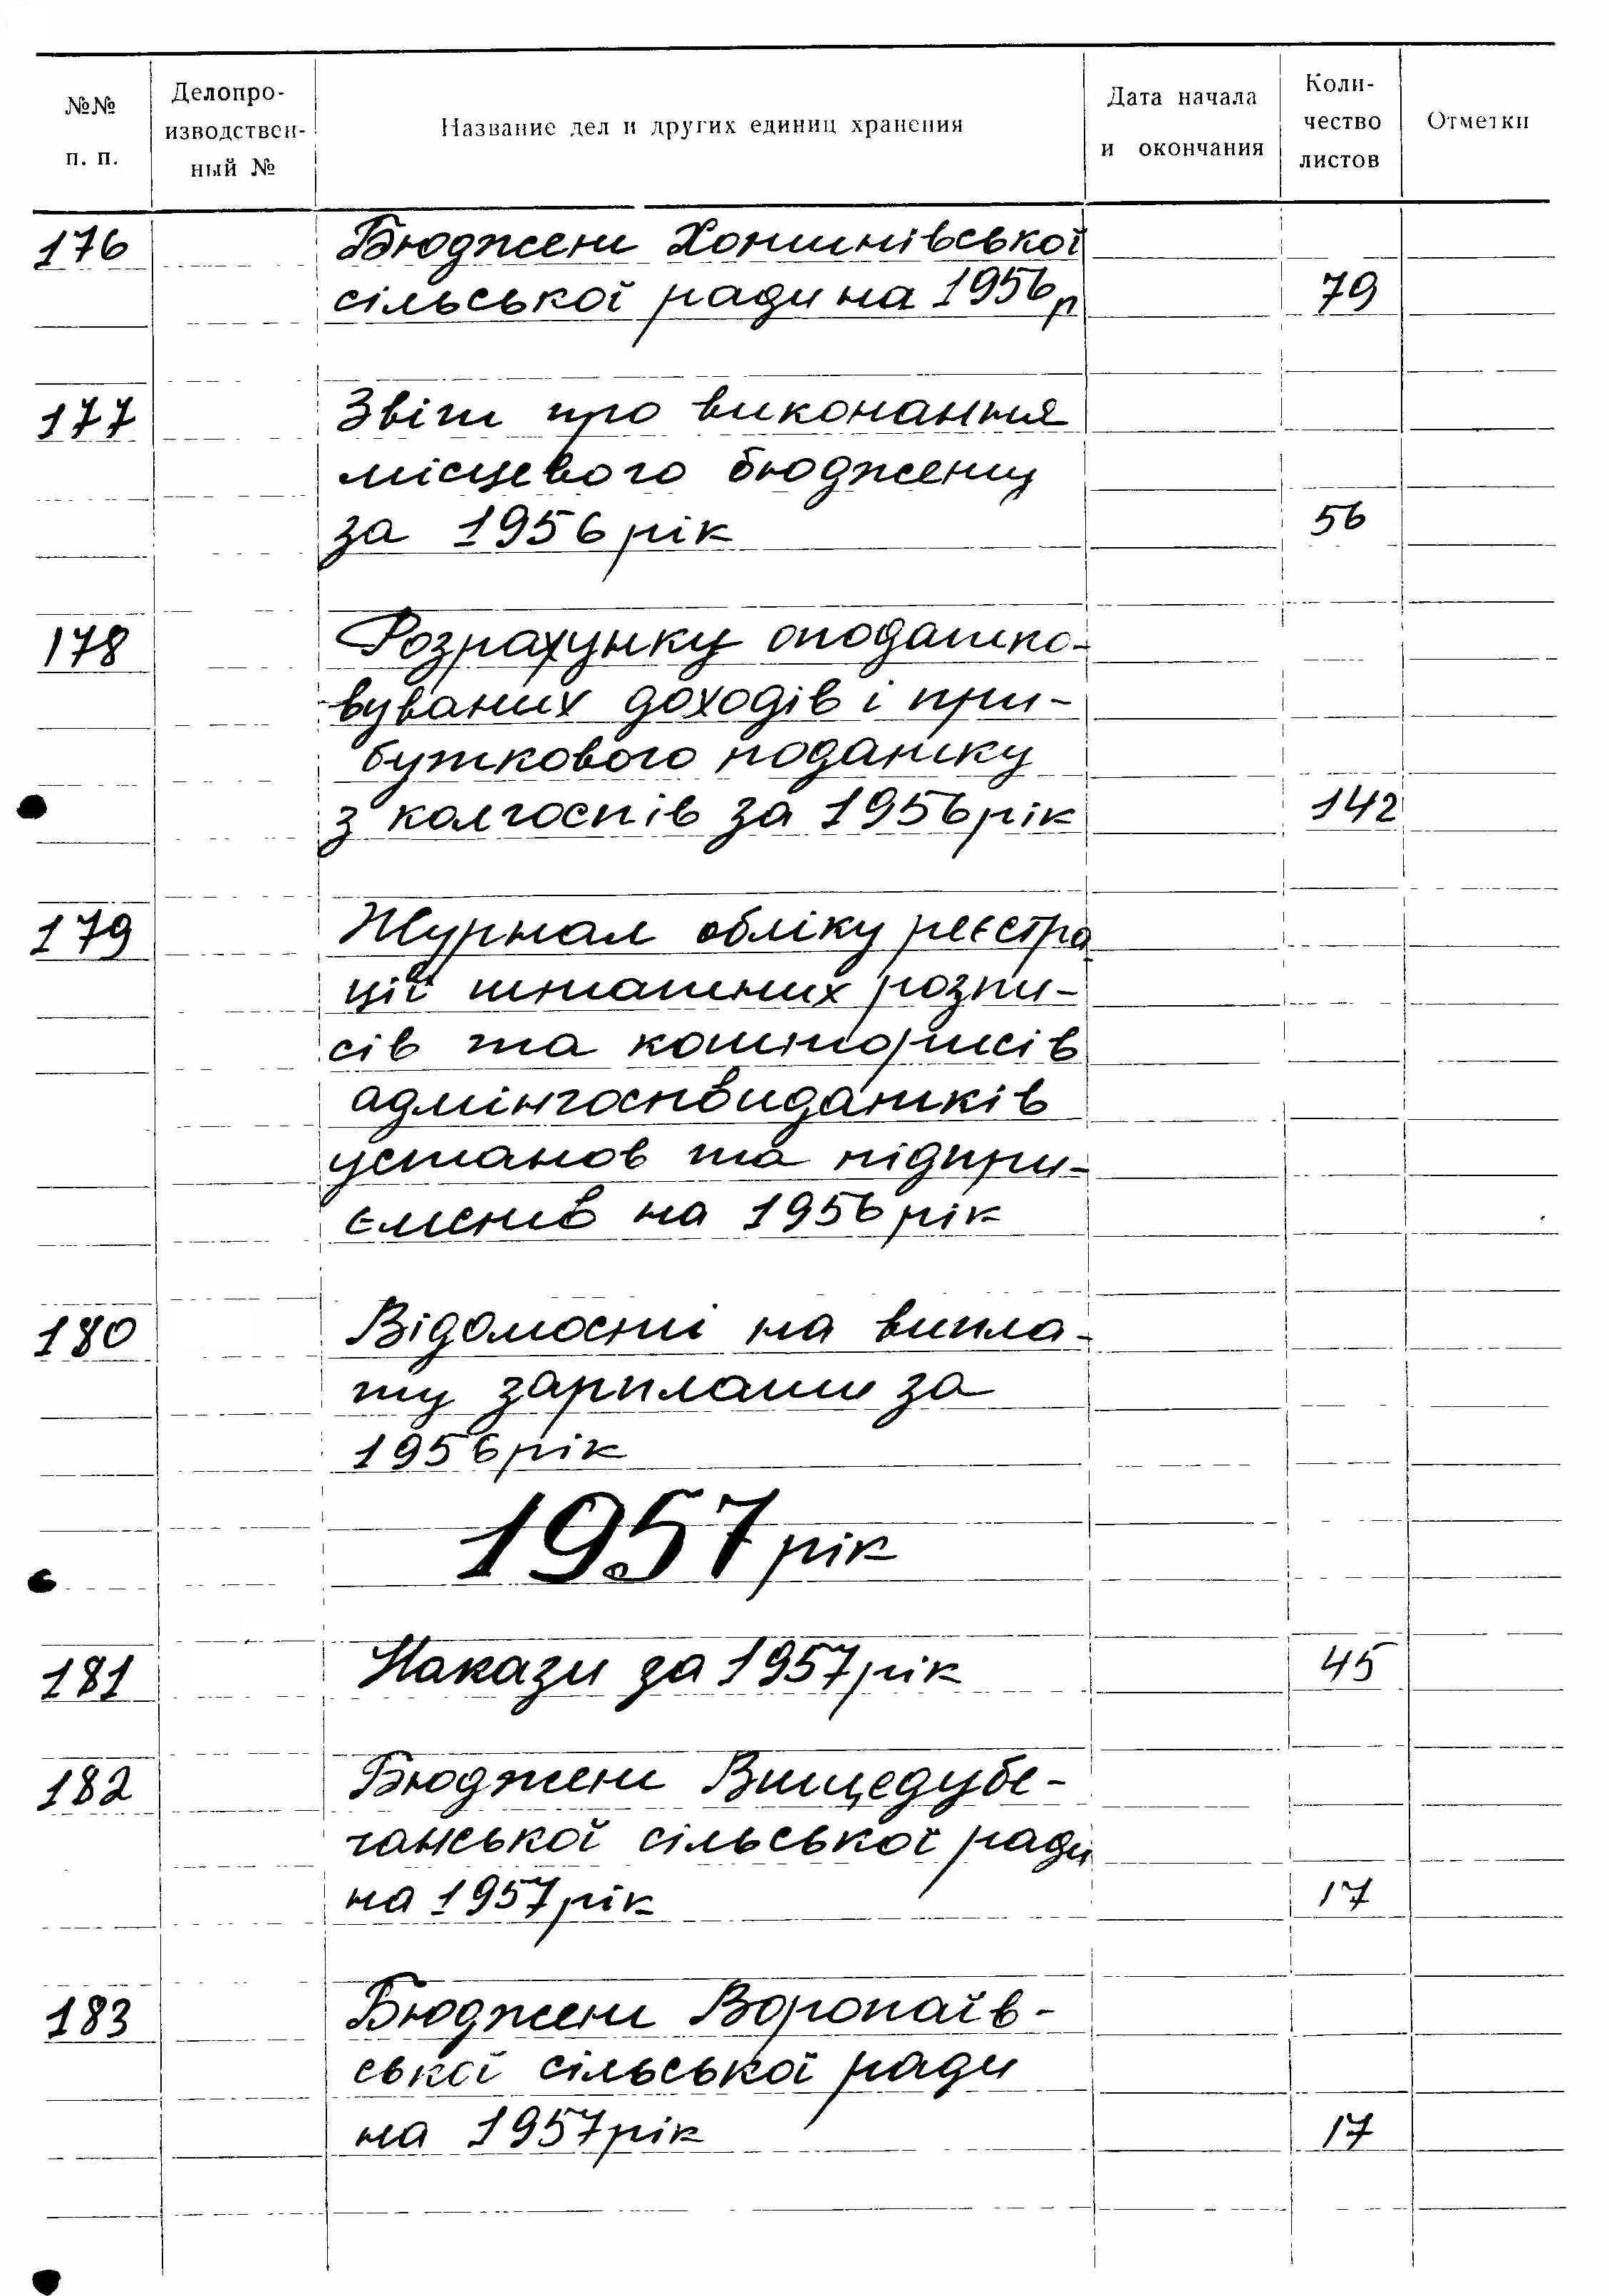 №№ п. п.
Делопро-изводствен-ный №
Название дел и других единиц хранения
Дата начала и окончания
Коли-чество листов
Отметки
176 Бюджет Хотинівської
сільської ради на 1956 р 79
177 Звіт про виконання
місцевого бюджету
за 1956 рік 56
178 Розрахунку оподатко-
вуваних доходів і при-
буткового податку
з колгоспів за 1956 рік 142
179 Журнал обліку реєстра
ції штатних розпи-
сів та кошторисів
адмінгоспвидатків
установ та підпри-
ємств на 1956 рік
180 Відомості на випла-
ту зарплати за
1956 рік
1957 рік
181 Накази за 1957 рік 45
182 Бюджет Вищедубе-
чанської сільської ради
на 1957 рік 17
183 Бюджет Воропаїв-
ської сільської ради
на 1957 рік 17